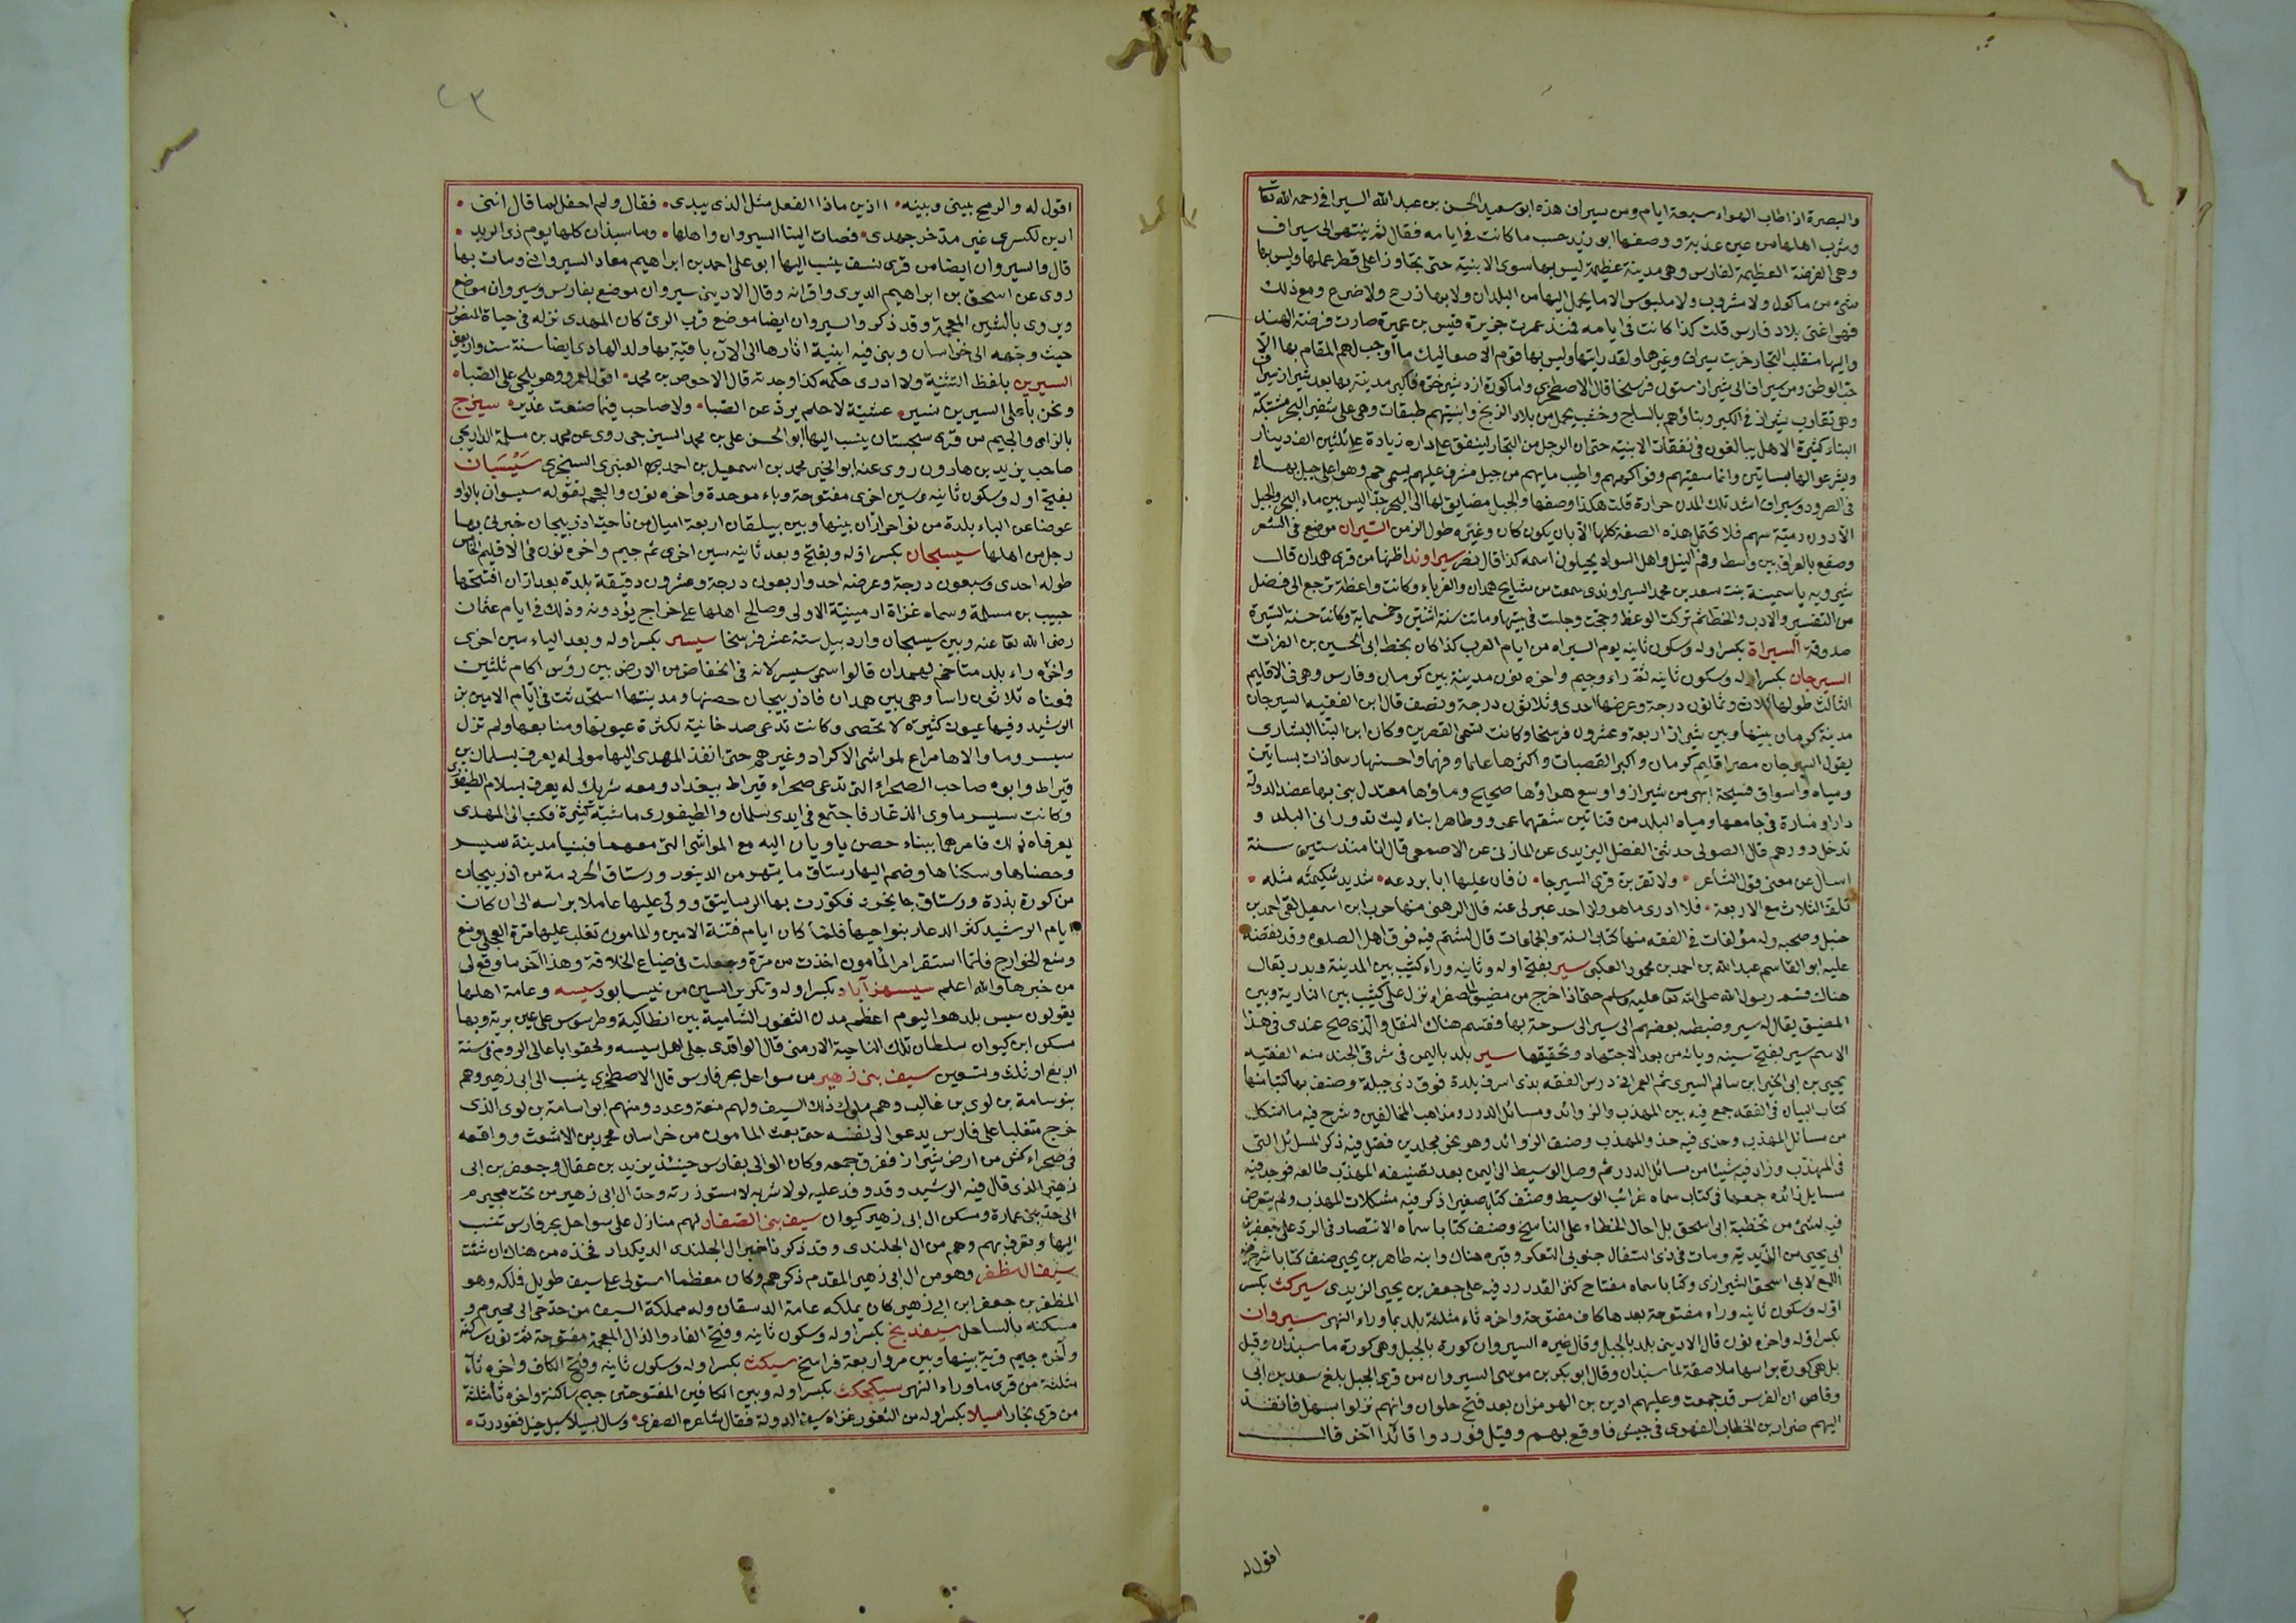 والبصرة اذا طاب الهواء سبعة ايام ومن سيراف هذه ابو سعيد الحسن بن عبد الله السيرافى رحمه الله تعا
وشرب اهلها من عين عذبة ووصفها ابو زيد حسب ما كانت فى ايامه فقال ثم ينتهى الى سيراف
وهى الفرضة العظيمة لفارس وهى مدينة عظيمة ليس بها سوى الابنية حتى يجاوز على قطر عملها وليس بها
شئ من ماكول ولا مشروب ولا ملبوس الا ما يحمل اليها من البلدان ولا بها زرع ولا ضرع ومع ذلك
فهى اغنى بلاد فارس قلت كذا كانت فى ايامه فمنذ عمرت جزيرة قيس بن عميرة صارت فرضة الهند
واليها منقلب التجار خربت سيراف وغيرها ولقد رايتها وليس بها قوم الا صعاليك ما اوجب لهم المقام بها الا
حب الوطن ومن سيراف الى شيراز ستون فرسخا قال الاصطخرى واما كورة ازدشير خره فاكبر مدينة بها بعد شيراز سيراف
وهى تقارب شيراز فى الكبر وبناؤهم بالساج وخشب يحمل من بلاد الزنج وابنيتهم طبقات وهى على شفير البحر مشتبكة
البناء كثيرة الاهل يبالغون فى نفقات الابنية حتى ان الرجل من التجار لينفق على داره زيادة على ثلثين الف دينار
ويشرعوا لها بساتين وانما سقيتهم وفواكههم واطيب مايهم من جبل مشرف عليهم يسمى جم وهو اعلى جبل بها
فى الصرود وسيراف اشد تلك المدن حرارة قلت هكذا وصفها والجبل مضايق لها الى البحر جدا ليس بين ماء البحر والجبل
الا دون رمية سهم فلا تحتمل هذه الصفة كلها الا بان يكون كان وغيره طول الزمن السيران موضع فى الشعر
وصقع بالعراق بين واسط وفم النيل واهل السواد يحيلون اسمه كذا قال نصر سيراوند اظنها من قرى همدان قال
شيرويه ياسمينة بنت سعد بن محمد السيراوندى سمعت من مشايخ همدان والغرباء وكانت واعظة ترجع الى فضل
من التفسير والادب والخط ثم تركت الوعظ وحجت وجلست فى بيتها وماتت سنة اثنتين وخمسماية وكانت حسنة السيرة
صدوقة السيراة بكسر اوله وسكون ثانيه يوم السيراه من ايام العرب كذا كان بخط ابى الحسين بن الفرات
السيرجان بكسر اوله وسكون ثانيه ثم راء وجيم واخره نون مدينة بين كرمان وفارس وهى فى الاقليم
الثالث طولها ثلاث وثمانون درجة وعرضها احدى وثلاثون درجة ونصف قال ابن الفقيه السيرجان
مدينة كرمان بينها وبين شيراز اربعة وعشرون فرسخا وكانت تسمى القصرين وكان ابن البنا البشارى
يقول السيرجان مصر اقليم كرمان واكبر القصبات واكثرها علما وفهما واحسنها رسما ذات بساتين
ومياه واسواق فسيحة ابهى من شيراز واوسع هواؤها صحيح وماؤها معتدل بنى بها عضد الدولة
دارا ومنارة فى جامعها ومياه البلد من قناتين شقهما عمرو وطاهر ابناء ليث تدور انى البلد و
تدخل دورهم قال الصولى حدثنى الفضل اليزيدى عن المازنى عن الاصمعى قال انا منذ ستين سنة
اسال عن معنى قول الشاعر ولا تقربن قرى السيرجا ن فان عليها ابا بردعه شديد شكيمته مثله
تلقى الثلاث مع الاربعة فلا ادرى ما هو ولا احد عبر لى عنه قال الرهنى منها حرب ابن اسمعيل لقى احمد بن
حنبل وصحبه وله مؤلفات فى الفقه منها كتاب السنة والجماعات قال لشتم فيه فرق اهل الصلوه وقد نقضه
عليه ابو القاسم عبد الله بن احمد بن محمود الكعبى سير بفتح اوله وثانيه وراء كثيب بين المدينة وبدر يقال
هناك قسم رسول الله صلى الله تعا عليه وسلم حتى اذا خرج من مضيق الصفراء نزل على كثيب بين النازية وبين
المضيق يقال له سير وضبطه بعضهم الى سير الى سرحة بها وقسم هناك النفل والذى صح عندى فى هذا
الاسم سير بفتح سينه ويائه من بعد الاجتهاد وتحقيقها سير بلد باليمن فى شرقى الجند منه الفقيه
يحيى بن ابى الخير ابن سالم السيرى ثم العمرانى درس الفقه بذى اسرف بلدة فوق ذى جبلة وصنف بها كتبا منها
كتاب البيان فى الفقه جمع فيه بين المهذب والزوائد ومسائل الدرر ومذاهب المخالفين وشرح فيه ما اشكل
من مسائل المهذب وحذى فيه حذو المهذب وصنف الزوائد وهو نحو مجلدين فضل فيه ذكر المسائل التى
فى المهذب وزاد فيه شيئا من مسائل الدرر ثم وصل الوسيط الى اليمن بعد تصنيفه المهذب طالعه فوجد فيه
مسايل زائده جمعها فى كتاب سماه غرائب الوسيط وصنف كتابا صغيرا ذكر فيه مشكلات المهذب ولم يتعرض
فيه لشئ من تخطية ابى اسحق بل احال الخطاء على الناسخ وصنف كتابا سماه الانتصار فى الرد على جعفر بن
ابى يحيى من الزيدية ومات فى ذى السفال جنوبى التعكر وقبره هناك وابنه طاهر بن يحيى صنف كتابا شرح فيه
اللمع لابى اسحق الشيرازى وكتابا سماه مفتاح كنز القدر رد فيه على جعفر بن يحيى الزيدى سيركث بكسر
اوله وسكون ثانيه وراء مفتوحة بعدها كاف مفتوحة واخره ثاء مثلثة بلد بما وراء النهر سيروان
بكسر اوله واخره نون قال الاديبى بلد بالجبل وقال غيره السيروان كورة بالجبل وهى كورة ماسبذان وقيل
بل هى كورة براسها ملاصقة لماسبذان وقال ابو بكر بن موسى السيروان من قرى الجبل بلغ سعد بن ابى
وقاص ان الفرس قد جمعت وعليهم اذين بن الهرمزان بعد فتح حلوان وانهم نزلوا بسهل فانفذ
اليهم ضرار بن الخطاب الفهرى فى جيش فاوقع بهم وقتل فوردوا قائدا آخر قال
اقول له
٤٣
اقول له والرمح بينى وبينه ااذين ماذا الفعل مثل الذى يبدى فقال ولم احفل لما قال اننى
ادين لكسرى غير مدخر جهدى فصات الينا السيروان واهلها وماسبذان كلها يوم ذى الريد
قال والسيروان ايضا من قرى نسف ينسب اليها ابو على احمد بن ابراهيم معاد السيروانى ومات بها
روى عن اسحق بن ابراهيم الدبرى واقرانه وقال الاديبى سيروان موضع بفارس وسيروان موضع
ويروى بالشين المعجمة وقد ذكر والسيروان ايضا موضع قرب الرى كان المهدى نزله فى حياة المنصور
حيث وجهه الى خراسان وبنى فيه ابنية اثارها الى الآن باقية بها ولد الهادى ايضا سنة ست واربعين
السيرين بلفظ التثنية ولا ادرى حكمه كذا وجدته قال الاحوص بن محمد اقول لعمرو وهو يلحى على الصبا
ونحن باعلى السيرين نسير عشية لا حلم يرد عن الصبا ولا صاحب فيما صنعت عذير سيزج
بالزاى والجيم من قرى سجستان ينسب اليها ابو الحسن على بن محمد السيزجى روى عن محمد بن مسلمة
صاحب يزيد بن هارون روى عنه ابو الخير محمد بن اسمعيل بن احمد بن العنبرى السيجزى سَيْسَبان
بفتح اوله وسكون ثانيه وسين اخرى مفتوحة وباء موحدة واخره نون والعجم تقوله سيسوان بالواو
عوضا عن الباء بلدة من نواحى اران بينها وبين بيلقان اربعة اميال من ناحية اذربيجان خبرنى بها
رجل من اهلها سيسجان بكسر اوله ويفتح وبعد ثانيه سين اخرى ثم جيم واخره نون فى الاقليم الخامس
طوله احدى وسبعون درجة وعرضه احد واربعون درجة وعشرون دقيقة بلدة بعد اران افتتحها
حبيب بن مسلمة وسماه غزاة ارمينية الاولى وصالح اهلها على خراج يؤدونه وذلك فى ايام عثمان
رضى الله تعا عنه وبين سيسجان واردبيل ستة عشر فرسخا سيسر بكسر اوله وبعد الياء سين اخرى
واخره راء بلد متاخم لهمدان قالوا سمى سيسر لانه فى انخفاض من الارض بين رؤس اكام ثلثين
فمعناه ثلاثون راسا وهى بين همدان واذربيجان حصنها ومدينتها استحدثت فى ايام الامين بن
الرشيد وفيها عيون كثيرة لا تحصى وكانت تدعى صد خانية لكثرة عيونها ومنابعها ولم تزل
سيسر وما والاها مراعى لمواشى الاكراد وغيرهم حتى انفذ المهدى اليها مولى له يعرف بسلمان بن
قيراط وابوه صاحب الصحراء التى تدعى صحراء قيراط ببغداد ومعه شريك له يعرف بسلام الطيفورى
وكانت سيسر ماوى الذعار فاجتمع فى ايدى سلمان والطيفورى ماشية كثيرة فكتب الى المهدى
يعرفاه ذلك فامرهما ببناء حصن ياويان اليه مع المواشى التى معهما فبنيا مدينة سيسر
وحصناها وسكناها وضم اليها رستاق ماينهرج من الدينور ورستاق الخرذمة من اذربيجان
من كورة بذرة ورستاق خانيجر فكورت بهذا الرساتيق وولى عليها عاملا براسه الى ان كان
ايام الرشيد كثر الذعار بنواحيها فلما كان ايام فتنة الامين والمامون تغلب عليها مرة العجلى ومنع
ومنع الخوارج فلما استقر امر المأمون اخذت من مرة وجعلت فى ضياع الخلافة وهذا آخر ما وقع لى
من خبرها والله اعلم سيسمراباد بكسر اوله وتكرير السين من نيسابور سيسه وعامة اهلها
يقولون سيس بلد هو اليوم اعظم مدن الثغور الشامية بين انطاكية وطرسوس على عين بربة وبها
مسكن ابن ليون سلطان تلك الناحية الارمنى قال الواقدى جلى اهل سيسه ولحقوا باعالى الروم فى سنة
اربع او ثلث وتسعين سيف بنى زهير من سواحل بحر فارس قال الاصطخرى ينسب الى ابى زهير وهم
بنو سامة بن لوى بن غالب وهم ملوك ذلك السيف ولهم منعة وعدد ومنهم ابو اسامة بن لوى الذى
خرج متغلبا على فارس يدعو الى نفسه حتى بعث المامون من خراسان محمد بن الاشعث وواقعه
فى صحراء كس من ارض شيراز ففرق جمعه وكان الوالى بفارس حينئذ يزيد بن عقال وجعفر بن ابى
زهير الذى قال فيه الرشيد وقد وفد عليه لولا شربه لاستوزرته وحد ال ابى زهير من تحت نجيرم
الى حد بنى عمارة ومسكن ال ابى زهير كيوان سيف بنى الصفار لهم منازل على سواحل بحر فارس تنسب
اليها وتعرف بهم وهم من ال الجلندى وقد ذكرنا خبر ال الجلندى الديكدان فخذه من هناك ان شئت
سيف ال مظفر وهو من ال ابى زهير المقدم ذكرهم وكان معظما استولى على سيف طويل فلكه وهو
المظفر بن جعفر ابن ابى زهير كان يملكه عامة الدسقان وله مملكة السيف من حد جى الى نجيرم و
مسكنه بالساحل سيفذنج بكسر اوله وسكون ثانيه وفتح الفاء والذال المعجمة مفتوحة ثم نون ساكنة
وآخره جيم قرية بينها وبين مرو اربعة فراسخ سيكث بكسر اوله وسكون ثانيه وفتح الكاف واخره ثاء
مثلثة من قرى ما وراء النهر سيكجكث بكسر اوله وبين الكافين المفتوحتين جيم ساكنة واخره ثا مثلثة
من قرى بخارا سيلا بكسر اوله من الثغور غزاه سيف الدولة فقال شاعره الصفرى وسال بسيلا سيل خيل فغودرت